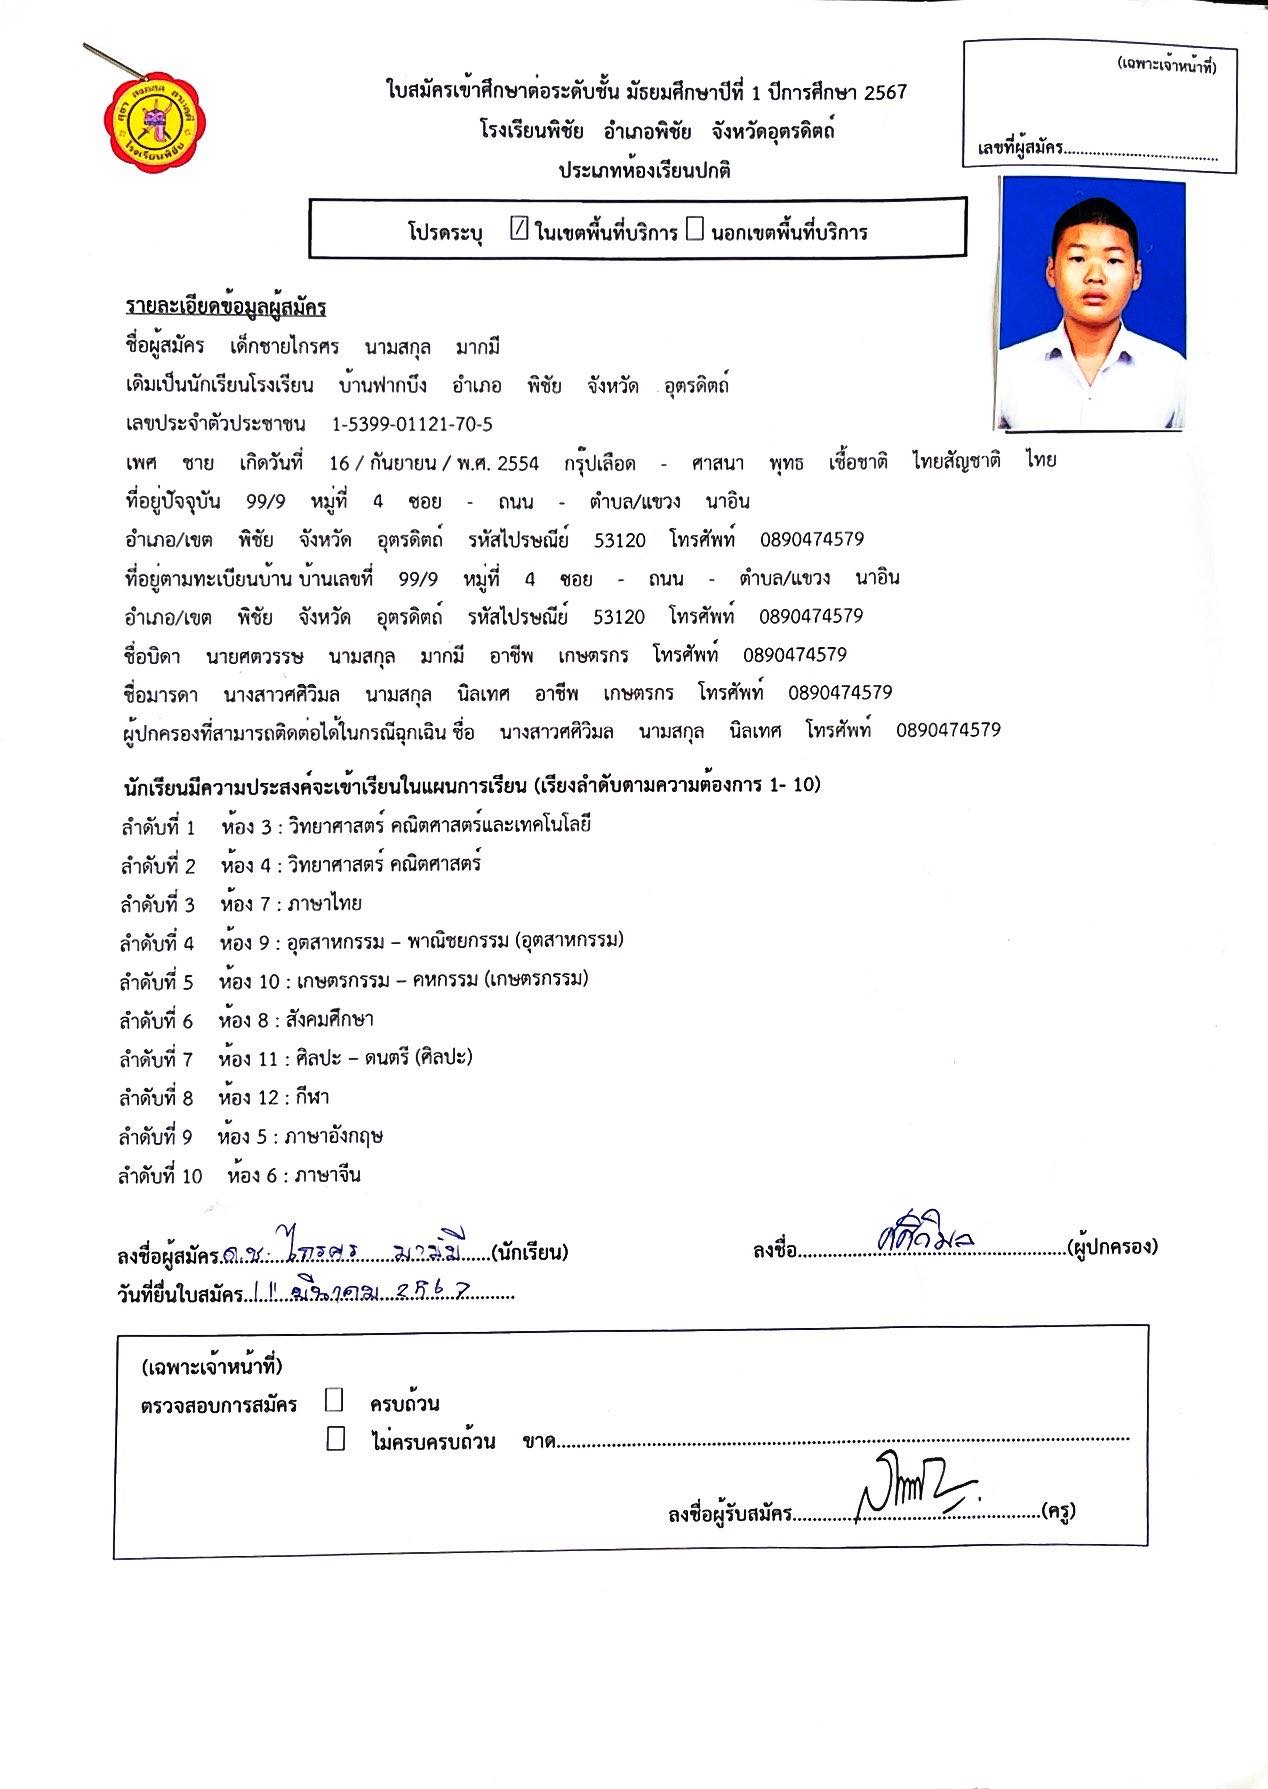 (เฉพาะเจ้าหน้าที่)
เลขที่ผู้สมัคร
ใบสมัครเข้าศึกษาต่อระดับชั้น มัธยมศึกษาปีที่ 1 ปีการศึกษา 2567
โรงเรียนพิชัย อำเภอพิชัย จังหวัดอุตรดิตถ์
ประเภทห้องเรียนปกติ
โรงเรียนพิชัย
โปรดระบุ ในเขตพื้นที่บริการ นอกเขตพื้นที่บริการ
รายละเอียดข้อมูลผู้สมัคร
ชื่อผู้สมัคร เด็กชายไกรศร นามสกุล มากมี
เดิมเป็นนักเรียนโรงเรียน บ้านฟากบึง อำเภอ พิชัย จังหวัด อุตรดิตถ์
เลขประจำตัวประชาชน 1-5399-01121-70-5
เพศ ชาย เกิดวันที่ 16 / กันยายน / พ.ศ. 2554 กรุ๊ปเลือด - ศาสนา พุทธ เชื้อชาติ ไทยสัญชาติ ไทย
ที่อยู่ปัจจุบัน 99/9 หมู่ที่ 4 ซอย - ถนน - ตำบล/แขวง นาอิน
อำเภอ/เขต พิชัย จังหวัด อุตรดิตถ์ รหัสไปรษณีย์ 53120 โทรศัพท์ 0890474579
ที่อยู่ตามทะเบียนบ้าน บ้านเลขที่ 99/9 หมู่ที่ 4 ซอย - ถนน - ตำบล/แขวง นาอิน
อำเภอ/เขต พิชัย จังหวัด อุตรดิตถ์ รหัสไปรษณีย์ 53120 โทรศัพท์ 0890474579
ชื่อบิดา นายศตวรรษ นามสกุล มากมี อาชีพ เกษตรกร โทรศัพท์ 0890474579
ชื่อมารดา นางสาวศศิวิมล นามสกุล นิลเทศ อาชีพ เกษตรกร โทรศัพท์ 0890474579
ผู้ปกครองที่สามารถติดต่อได้ในกรณีฉุกเฉิน ชื่อ นางสาวศศิวิมล นามสกุล นิลเทศ โทรศัพท์ 0890474579
นักเรียนมีความประสงค์จะเข้าเรียนในแผนการเรียน (เรียงลำดับตามความต้องการ 1- 10)
ลำดับที่ 1 ห้อง 3 : วิทยาศาสตร์ คณิตศาสตร์และเทคโนโลยี
ลำดับที่ 2 ห้อง 4 : วิทยาศาสตร์ คณิตศาสตร์
ลำดับที่ 3 ห้อง 7 : ภาษาไทย
ลำดับที่ 4 ห้อง 9 : อุตสาหกรรม – พาณิชยกรรม (อุตสาหกรรม)
ลำดับที่ 5 ห้อง 10 : เกษตรกรรม – คหกรรม (เกษตรกรรม)
ลำดับที่ 6 ห้อง 8 : สังคมศึกษา
ลำดับที่ 7 ห้อง 11 : ศิลปะ – ดนตรี (ศิลปะ)
ลำดับที่ 8 ห้อง 12 : กีฬา
ลำดับที่ 9 ห้อง 5 : ภาษาอังกฤษ
ลำดับที่ 10 ห้อง 6 : ภาษาจีน
ลงชื่อผู้สมัคร ด.ช. ไกรศร มากมี (นักเรียน) ลงชื่อ ศศิวิมล (ผู้ปกครอง)
วันที่ยื่นใบสมัคร 11 มีนาคม 2567
(เฉพาะเจ้าหน้าที่)
ตรวจสอบการสมัคร ครบถ้วน
ไม่ครบครบถ้วน ขาด
ลงชื่อผู้รับสมัคร (ครู)